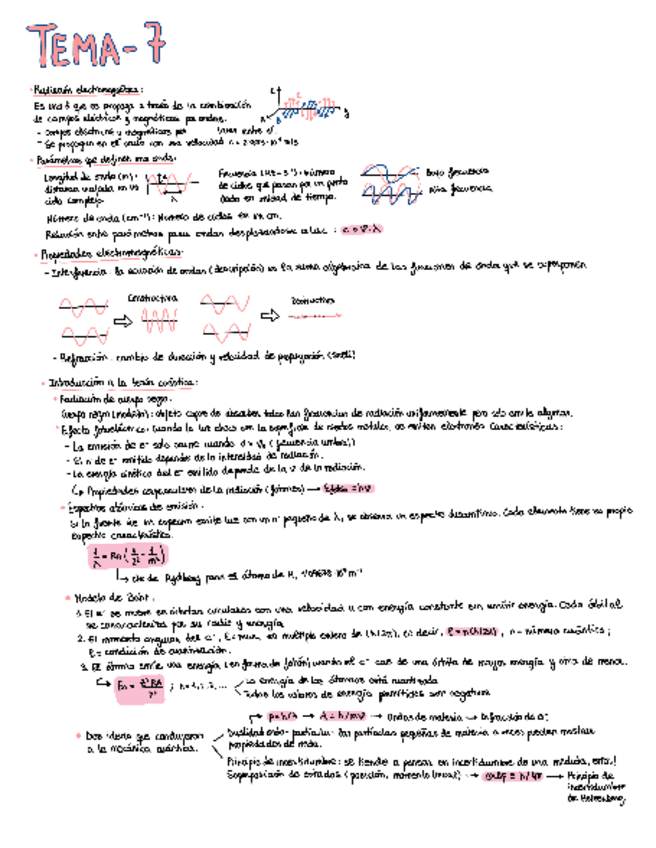 TEMA-7
Radiación electromagnética:
Es una E que se propaga a través de la combinación
de campos eléctricos y magnéticos
- Campos eléctricos y magnéticos entre sí.
- Se propagan en el vacío con una velocidad c =
Parámetros que definen una onda:
Longitud de onda (m):
distancia viajada en un
ciclo completo.
λ
Frecuencia (Hz = s⁻¹): número
de ciclos que pasan por un punto
dado en unidad de tiempo.
Baja frecuencia
Alta frecuencia
Número de onda (cm⁻¹): Número de ciclos en un cm.
Relación entre parámetros para ondas desplazándose a la c : c = ν·λ
Propiedades electromagnéticas:
- Interferencia: la ecuación de ondas (descripción) es la suma algebraica de las funciones de onda que se superponen
Constructiva
Destructiva
- Refracción: cambio de dirección y velocidad de propagación (Snell)
Introducción a la teoría cuántica:
Radiación de cuerpo negro.
Cuerpo negro (modelo): objeto capaz de absorber todas las frecuencias de radiación uniformemente pero sólo emite algunas.
Efecto fotoeléctrico: cuando la luz choca con la superficie de metales, se emiten electrones. Características:
- La emisión de e⁻ solo ocurre cuando ν > ν₀ (frecuencia umbral)
- El n de e⁻ emitido depende de la intensidad de radiación.
- La energía cinética del e⁻ emitido depende de la ν de la radiación.
↳ Propiedades corpusculares de la radiación (fotones) → = hν
Espectros atómicos de emisión.
Si la fuente de un espectro emite luz con un nº pequeño de λ, se observa un espectro discontinuo. Cada elemento tiene su propio
espectro característico.
1/λ = RH (1/2² - 1/n²)
→ cte de Rydberg para el átomo de H,
Modelo de Bohr.
1. El e⁻ se mueve en órbitas circulares con una velocidad u con energía constante sin emitir energía. Cada órbital
se caracteriza por su radio y energía
2. El momento angular del e⁻, es múltiplo entero de (h/2π), es decir, ℓ = n(h/2π), n = número cuántico;
ℓ = condición de cuantización.
3. El átomo emite una energía (en forma de fotón) cuando el e⁻ cae de una órbita de mayor energía y otra de menor.
; n = 1, 2, 3, ...
La energía de los átomos está cuantizada
Todos los valores de energía permitidos son negativos
p = h/λ → λ = h/mv → Ondas de materia →
Dos ideas que condujeron
a la mecánica cuántica.
Dualidad onda-partícula: las partículas pequeñas de materia a veces pueden mostrar
propiedades de onda.
Principio de incertidumbre: se tiende a pensar en incertidumbre de una medida, error!
Superposición de estados (posición, momento lineal) → → Principio de
incertidumbre
de Heisenberg.